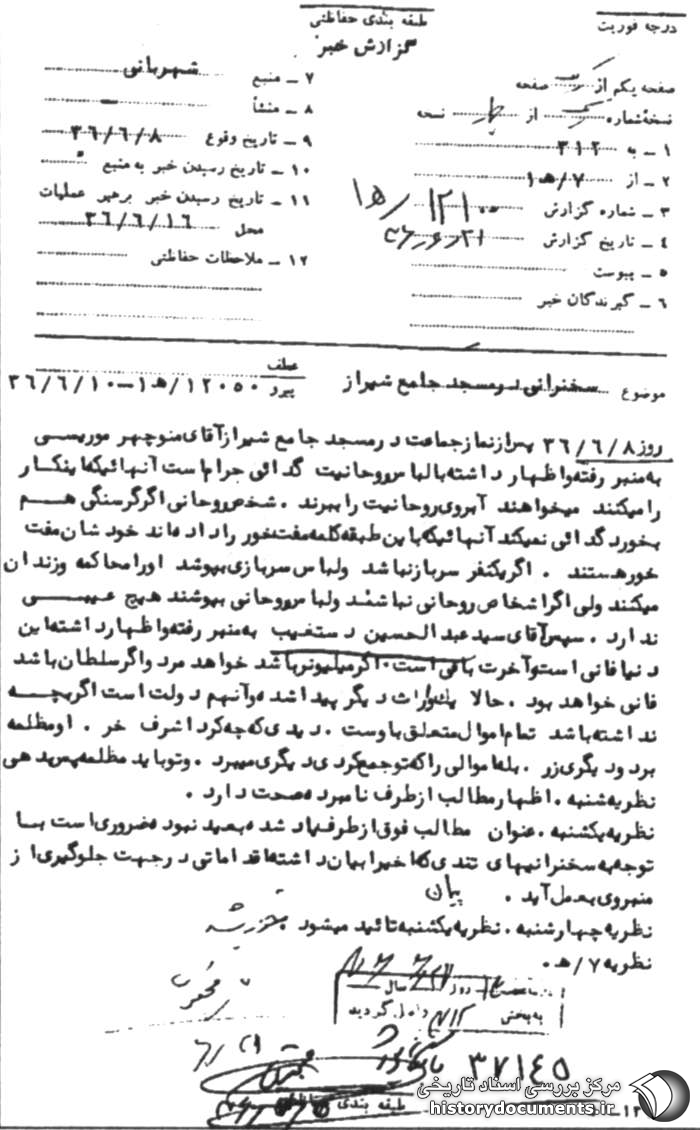 درجه فوریت
طبقه بندی حفاظتی
گزارش خبر
صفحه یکم از یک صفحه
نسخه شماره یک از چهار نسخه
۱ ــ به ۳۱۲
۲ ــ از ۷/ه‍ ۱
۳ ــ شماره گزارش ۱۲۱۰۰/ه‍ ۱
۴ ــ تاریخ گزارش ۳۶٫۶٫۲۱
۵ ــ پیوست
۶ ــ گیرندگان خبر
۷ ــ منبع شهربانی
۸ ــ منشأ ــ
۹ ــ تاریخ وقوع ۳۶/۶/۸
۱۰ ــ تاریخ رسیدن خبر به منبع
۱۱ ــ تاریخ رسیدن خبر برهبر عملیات
محل ۳۶/۶/۱۶
۱۲ ــ ملاحظات حفاظتی
موضوع سخنرانی در مسجد جامع شیراز
عطف
پیرو ۱۲۰۵۰/ه‍ ۱–۳۶/۶/۱۰
روز ۳۶/۶/۸ پس از نماز جماعت در مسجد جامع شیراز آقای منوچهر موریسی
به منبر رفته و اظهار داشته با لباس روحانیت گدائی حرام است آنهائیکه اینکار
را میکنند میخواهند آبروی روحانیت را ببرند . شخص روحانی اگر گرسنگی هم
بخورد گدائی نمیکند آنهائیکه باین طبقه کلمه مفت خور را داده اند خودشان مفت
خور هستند . اگر یکنفر سرباز نباشد ولباس سربازی بپوشد اورا محاکمه وزندان
میکنند ولی اگر اشخاص روحانی نباشند ولباس روحانی بپوشند هیچ عیبی
ندارد . سپس آقای سید عبدالحسین دستغیب به منبر رفته و اظهار داشته این
دنیا فانی است و آخرت باقی است . اگر میلیونر باشد خواهد مرد و اگر سلطان باشد
فانی خواهد بود . حالا یک وراث دیگر پیدا شده و آنهم دولت است اگر بچه
نداشته باشد تمام اموال متعلق باوست . دیدی که چه کرد اشرف خر . او مظلمه
برد و دیگری زر . بله اموالی را که تو جمع کردی دیگری میبرد . وتو باید مظلمه پس دهی
نظریه شنبه . اظهار مطالب از طرف نامبرده صحت دارد .
نظریه یکشنبه . عنوان مطالب فوق از طرف یاد شده بعید نبوده ضروری است با
توجه به سخنرانیهای تندی که اخیرا بیان داشته اقداماتی در جهت جلوگیری از
منبر وی بعمل آید . پیمان
نظریه چهارشنبه . نظریه یکشنبه تائید میشود .
نظریه ۷/ه‍ .
روز سال
به بخش ۳۱۲ واصل گردید
۳۷۱۴۵
طبقه بندی حفاظتی
مرکز بررسی اسناد تاریخی
historydocuments.ir